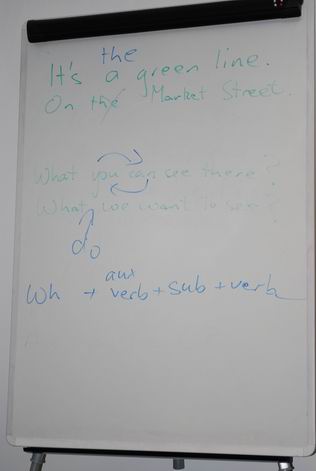 the
It's a green line.
On the Market Street.
What you can see there?
What we want to see?
do
aux
Wh + verb + sub + verb